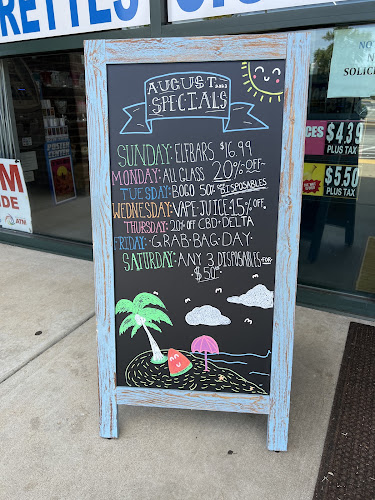 RETTES
AUGUST
SPECIALS
SUNDAY: ELFBARS $16.99
MONDAY: ALL GLASS 20% OFF
TUESDAY: BOGO 50% DISPOSABLES
WEDNESDAY: VAPE JUICE 15% OFF
THURSDAY: 20% OFF CBD + DELTA
FRIDAY: GRAB BAG DAY
SATURDAY: ANY 3 DISPOSABLES FOR
$50
M
IDE
ATM
NO
SOLICI
CES $4.39
PLUS TAX
$5.50
PLUS TAX